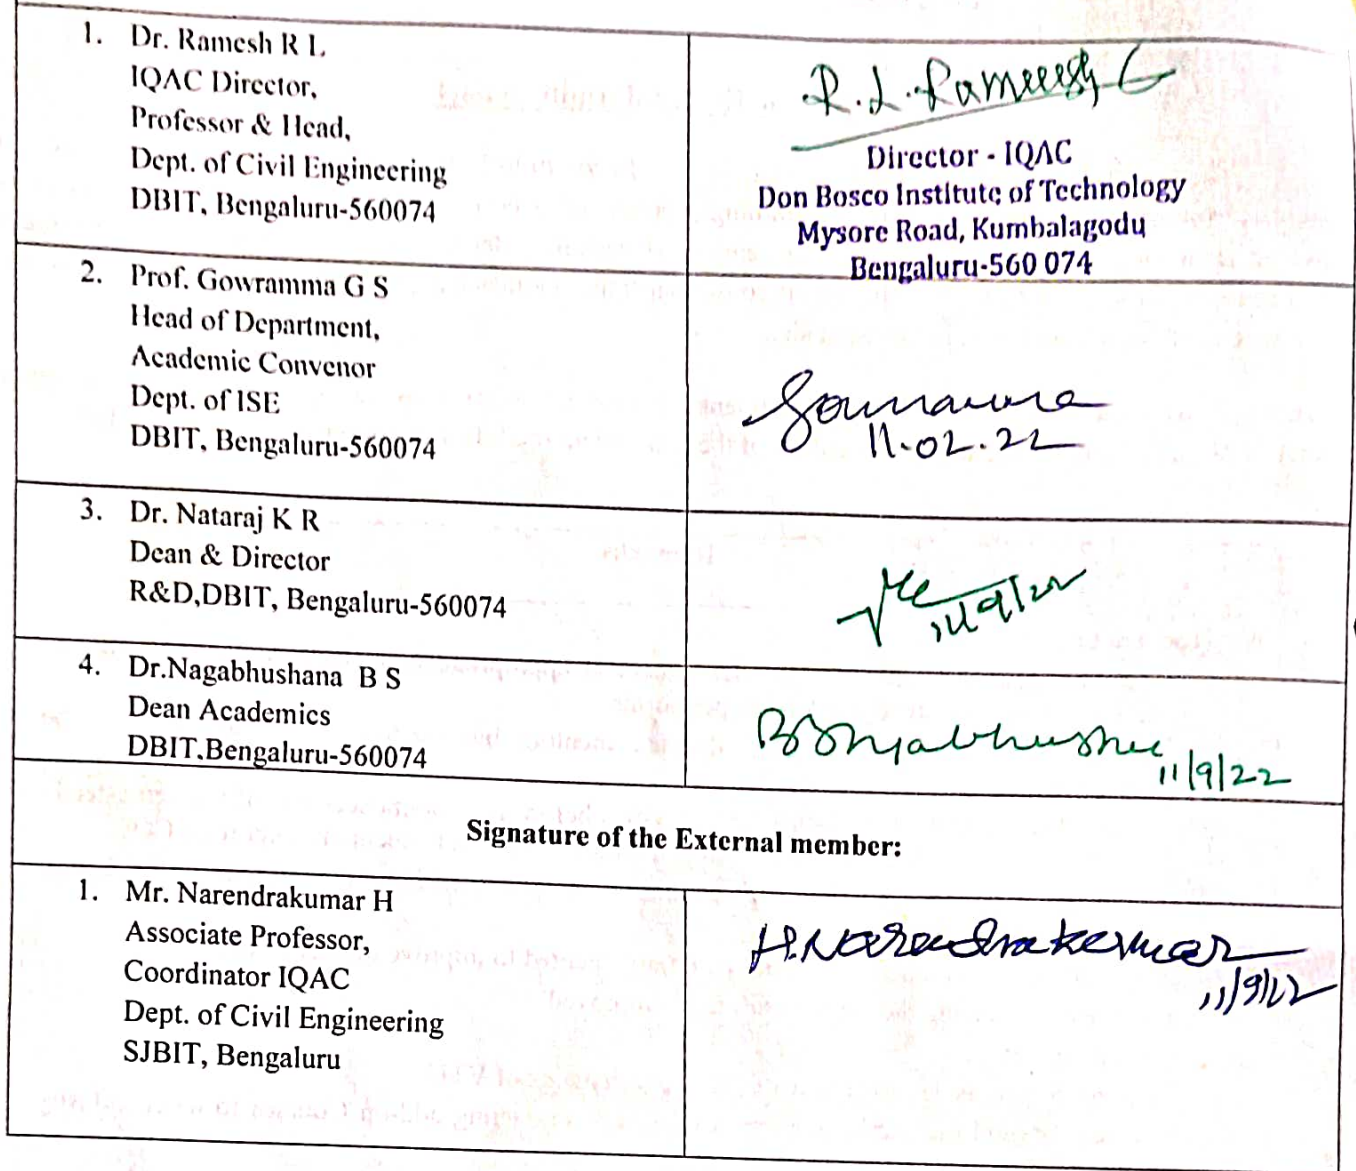 1. Dr. Ramesh R L
IQAC Director,
Professor & Head,
Dept. of Civil Engineering
DBIT, Bengaluru-560074
R.L.Ramesh
Director - IQAC
Don Bosco Institute of Technology
Mysore Road, Kumbalagodu
Bengaluru-560 074
2. Prof. Gowramma G S
Head of Department,
Academic Convenor
Dept. of ISE
DBIT, Bengaluru-560074
11.02.22
3. Dr. Nataraj K R
Dean & Director
R&D,DBIT, Bengaluru-560074
4. Dr.Nagabhushana B S
Dean Academics
DBIT.Bengaluru-560074
11/9/22
Signature of the External member:
1. Mr. Narendrakumar H
Associate Professor,
Coordinator IQAC
Dept. of Civil Engineering
SJBIT, Bengaluru
H.Narendrakumar
11/9/22